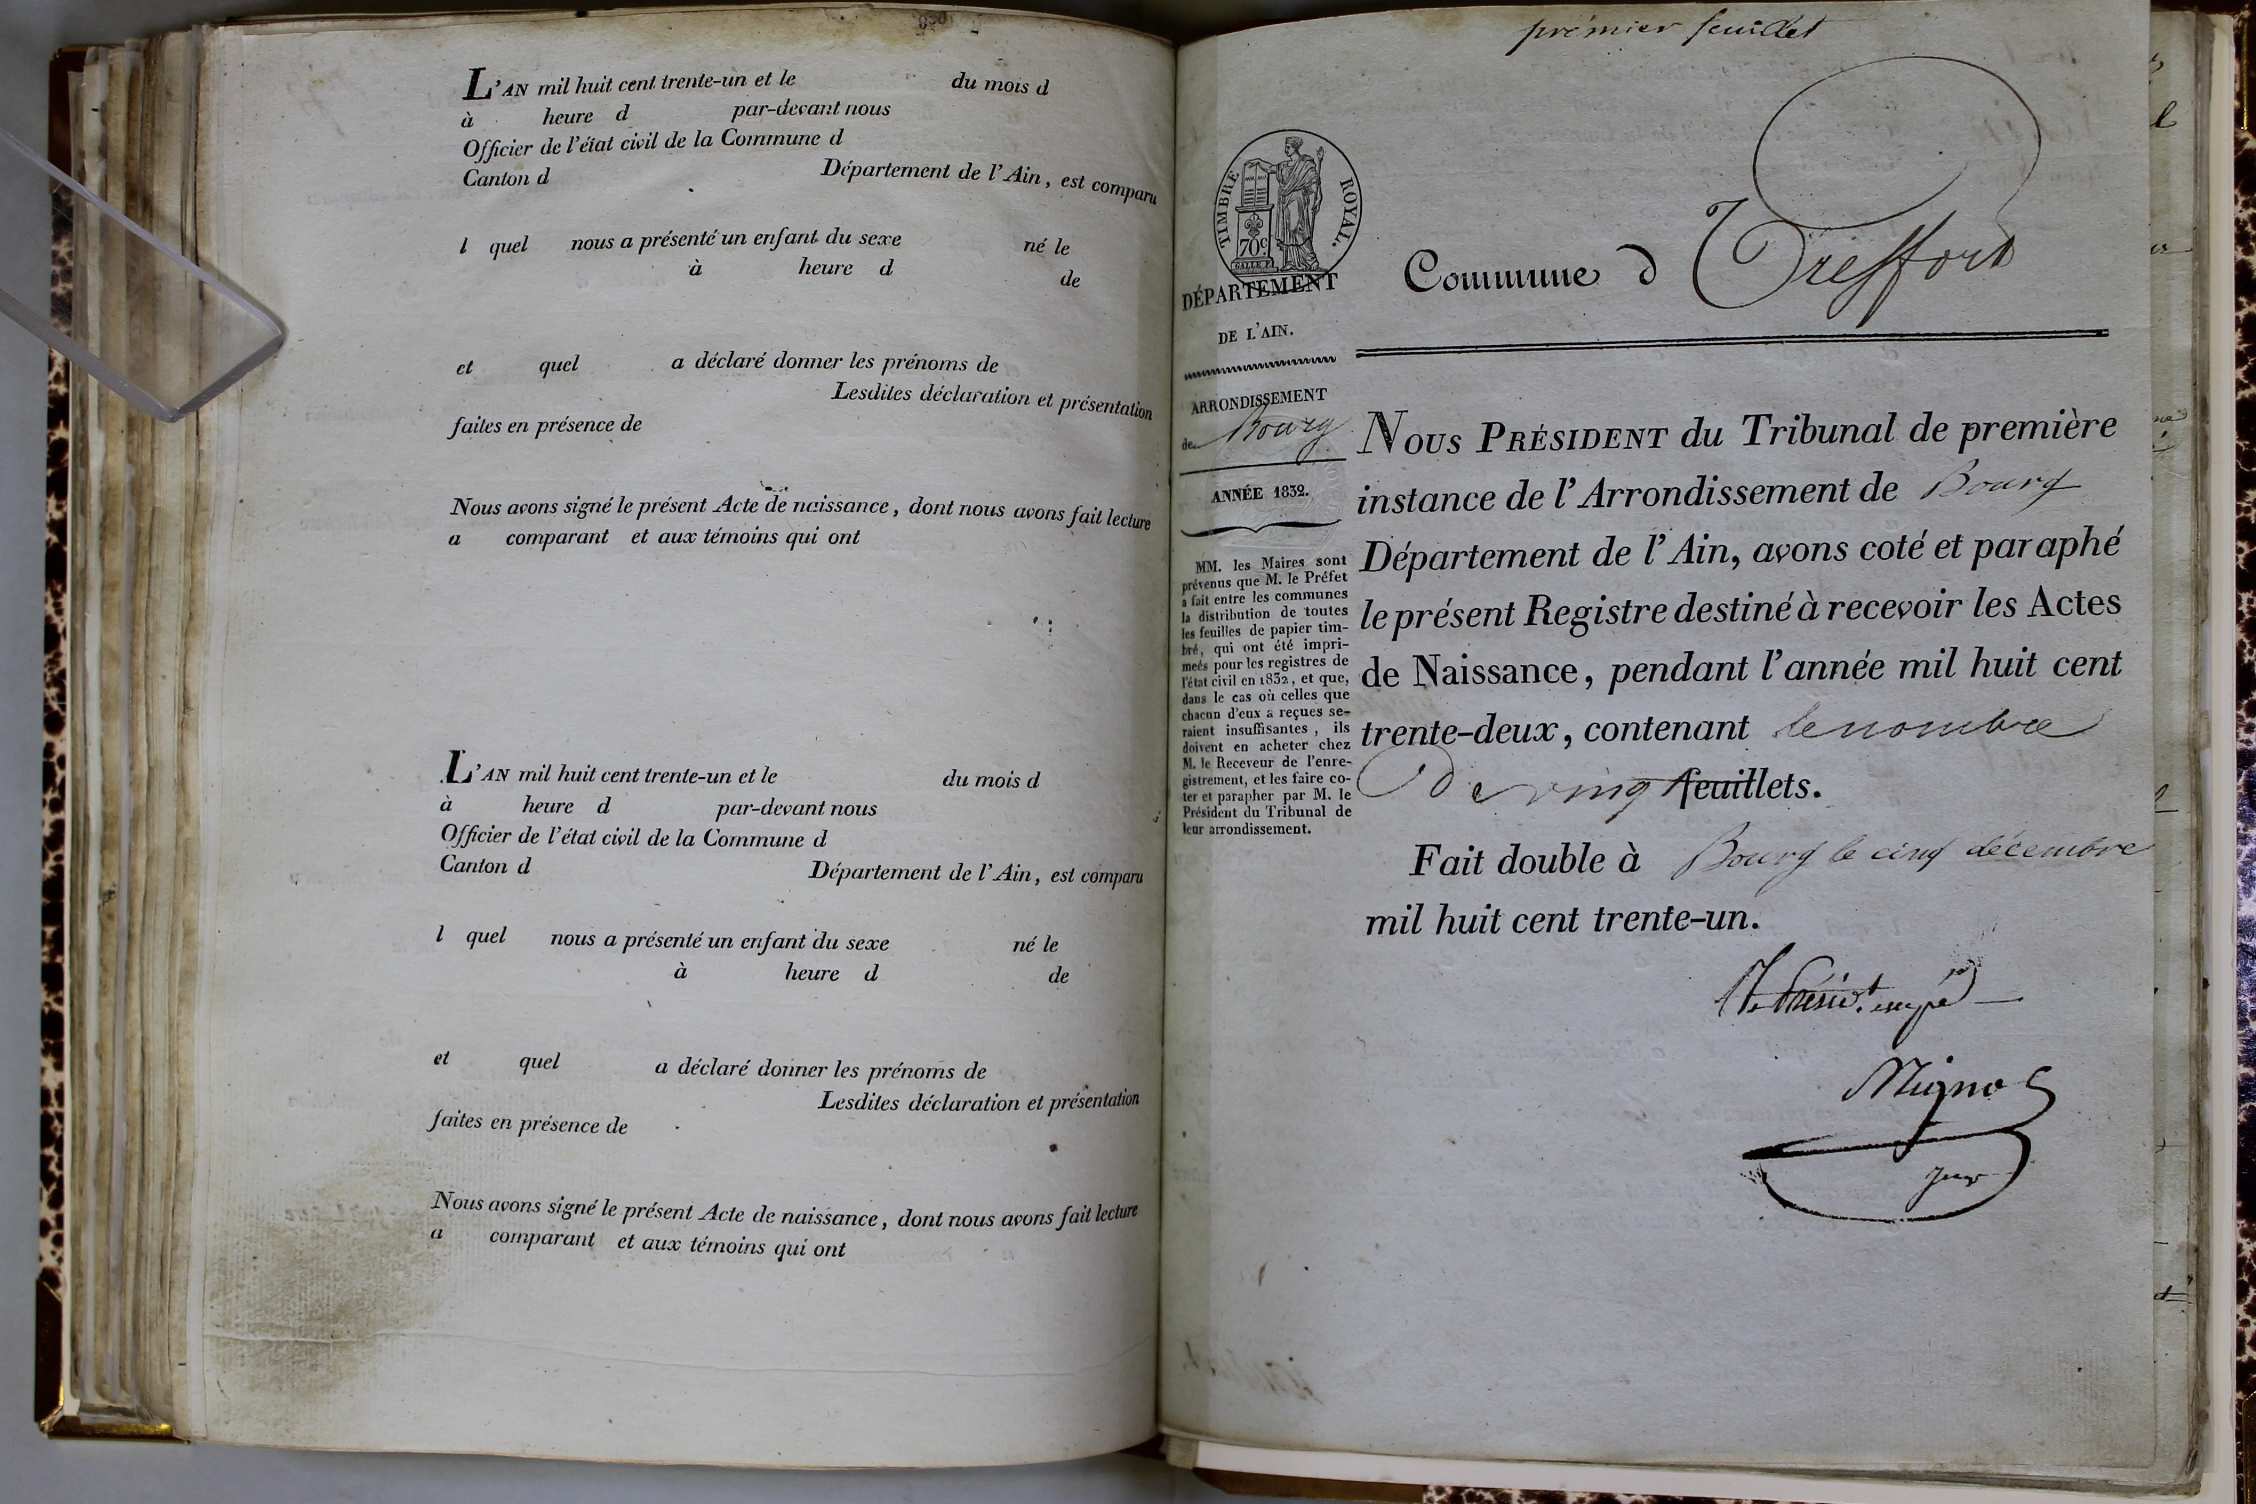 L'AN mil huit cent trente-un et le du mois d
à heure d par-devant nous
Officier de l'état civil de la Commune d
Canton d Département de l'Ain, est comparu
l quel nous a présenté un enfant du sexe né le
à heure d de
et quel a déclaré donner les prénoms de
Lesdites déclaration et présentation
faites en présence de
Nous avons signé le présent Acte de naissance, dont nous avons fait lecture
a comparant et aux témoins qui ont
L'AN mil huit cent trente-un et le du mois d
à heure d par-devant nous
Officier de l'état civil de la Commune d
Canton d Département de l'Ain, est comparu
l quel nous a présenté un enfant du sexe né le
à heure d de
et quel a déclaré donner les prénoms de
Lesdites déclaration et présentation
faites en présence de
Nous avons signé le présent Acte de naissance, dont nous avons fait lecture
a comparant et aux témoins qui ont
premier feuillet
TIMBRE ROYAL.
70c
DÉPARTEMENT
DE L'AIN.
ARRONDISSEMENT
de Bourg
ANNÉE 1832.
MM. les Maires sont
prévenus que M. le Préfet
a fait entre les communes
la distribution de toutes
les feuilles de papier tim-
bré, qui ont été impri-
meés pour les registres de
l'état civil en 1832, et que,
dans le cas où celles que
chacun d'eux a reçues se-
raient insuffisantes, ils
doivent en acheter chez
M. le Receveur de l'enre-
gistrement, et les faire co-
ter et parapher par M. le
Président du Tribunal de
leur arrondissement.
Commune d Treffort
NOUS PRÉSIDENT du Tribunal de première
instance de l'Arrondissement de Bourg
Département de l'Ain, avons coté et paraphé
le présent Registre destiné à recevoir les Actes
de Naissance, pendant l'année mil huit cent
trente-deux, contenant le nombre
de vingt feuillets.
Fait double à Bourg le cinq décembre
mil huit cent trente-un.
Le Présidt. empé
juge